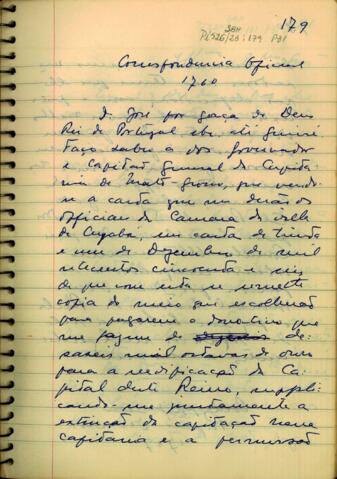 179
SBH
Pi 526/28:179 P31
Correspondencia Oficial
1760
D. José por graça de Deus
Rei de Portugal etc etc etc
Faço saber a vós Governador
e Capitão General da Capita
nia de Matto-grosso, que vendo-
se a carta que me derão os
officiaes da Camara da villa
de Cuyabá, em carta de trinta
e um de Dezembro de mil
setecentos cincoenta e seis
de que com esta se remette
copia do meio que escolherão
para pagarem o donativo que
me fazem de de-
saseis mil oitavas de ouro
para a reedificação da Ca-
pital deste Reino, suppli
cando-me juntamente a
extinção da capitação nessa
capitania e a permissão